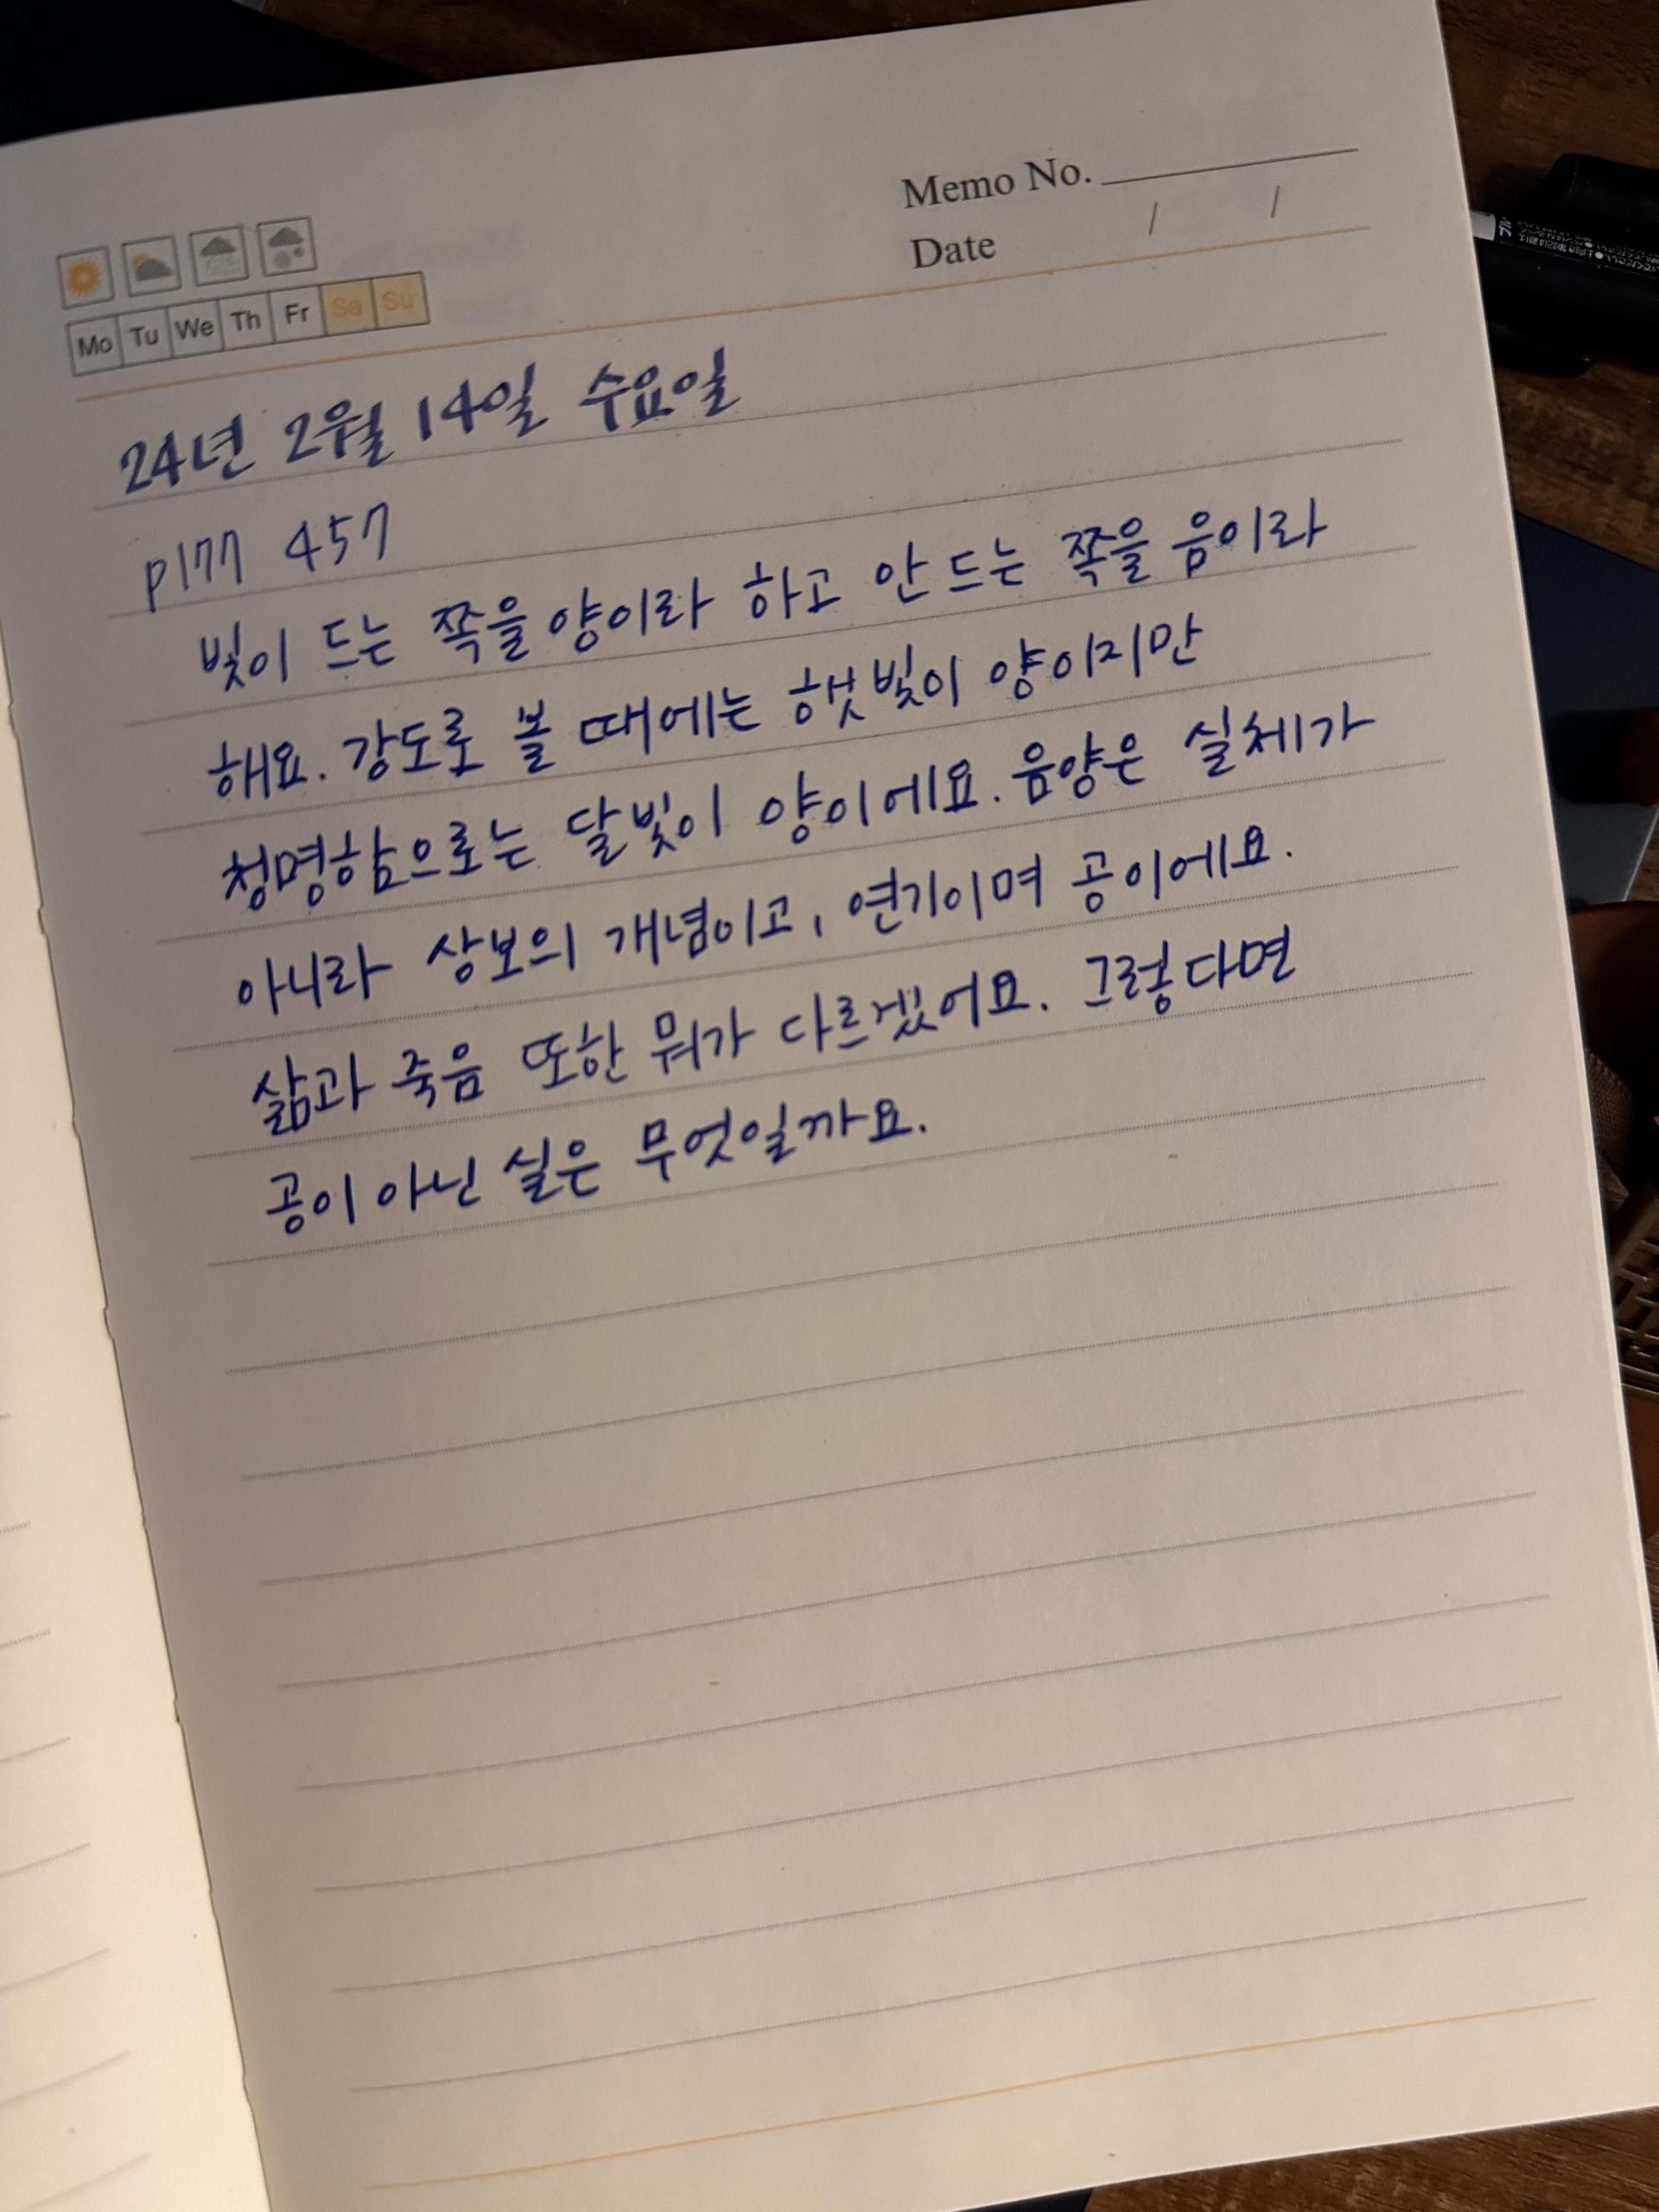 Memo No.
Date / /
Mo Tu We Th Fr Sa Su
24년 2월 14일 수요일
p177 457
빛이 드는 쪽을 양이라 하고 안 드는 쪽을 음이라
해요. 강도로 볼 때에는 햇빛이 양이지만
청명함으로는 달빛이 양이에요. 음양은 실체가
아니라 상보의 개념이고, 연기이며 공이에요.
삶과 죽음 또한 뭐가 다르겠어요. 그렇다면
공이 아닌 실은 무엇일까요.